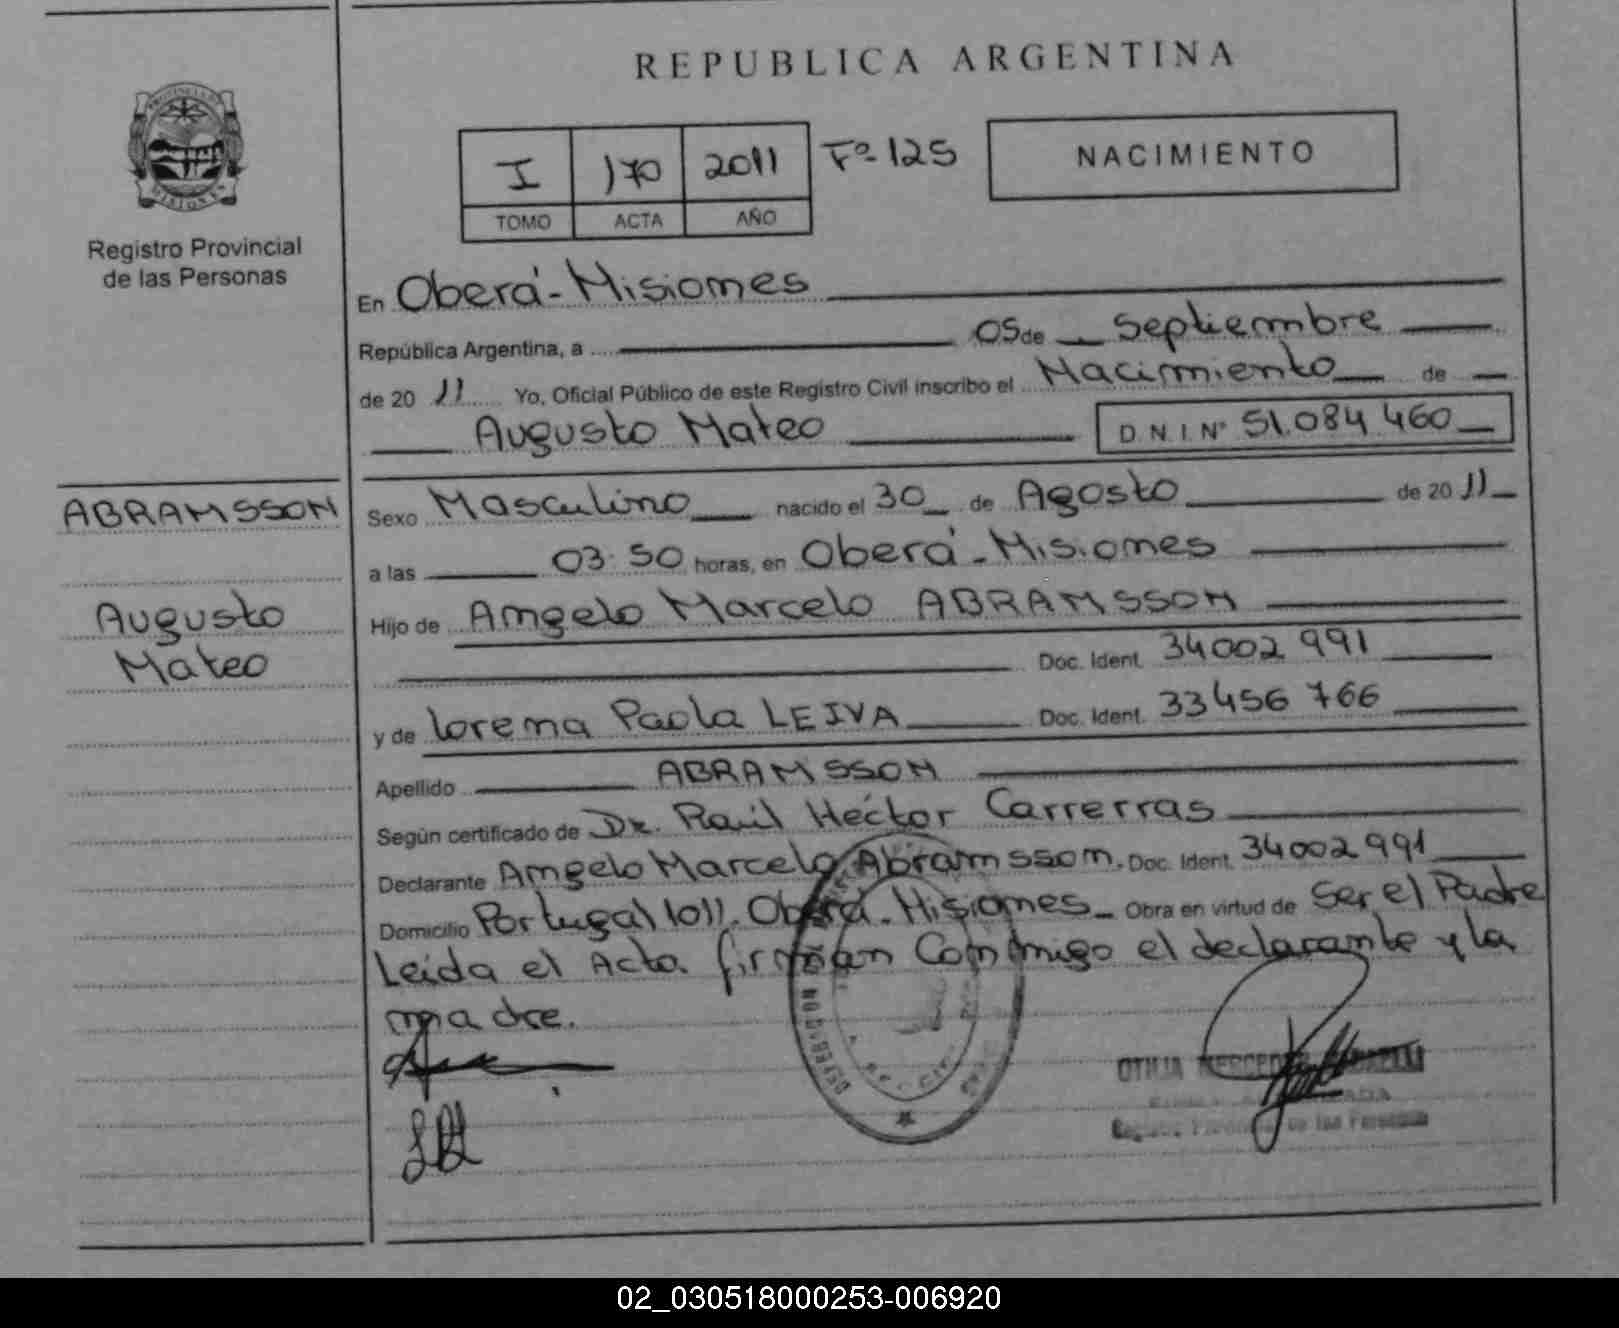 REPUBLICA ARGENTINA
PROVINCIA DE
MISIONES
Registro Provincial
de las Personas
I 170 2011 Fº 125
TOMO ACTA AÑO
NACIMIENTO
En Oberá - Misiones
República Argentina, a 05 de Septiembre
de 20 11 Yo, Oficial Público de este Registro Civil inscribo el Nacimiento de
Augusto Mateo D.N.I. Nº 51.084.460
ABRAMSSON
Augusto
Mateo
Sexo Masculino nacido el 30 de Agosto de 20 11
a las 03:50 horas, en Oberá - Misiones
Hijo de Angelo Marcelo ABRAMSSON
Doc. Ident. 34002 991
y de Lorena Paola LEIVA Doc. Ident. 33456 766
Apellido ABRAMSSON
Según certificado de Dr. Raúl Héctor Carrerras
Declarante Angelo Marcelo Abramsson. Doc. Ident. 34002 991
Domicilio Portugal 1011. Oberá - Misiones - Obra en virtud de Ser el Padre
Leída el Acta firman Conmigo el declarante y la
madre.
OTILIA MERCEDES
Registro Provincial de las Personas
02_030518000253-006920